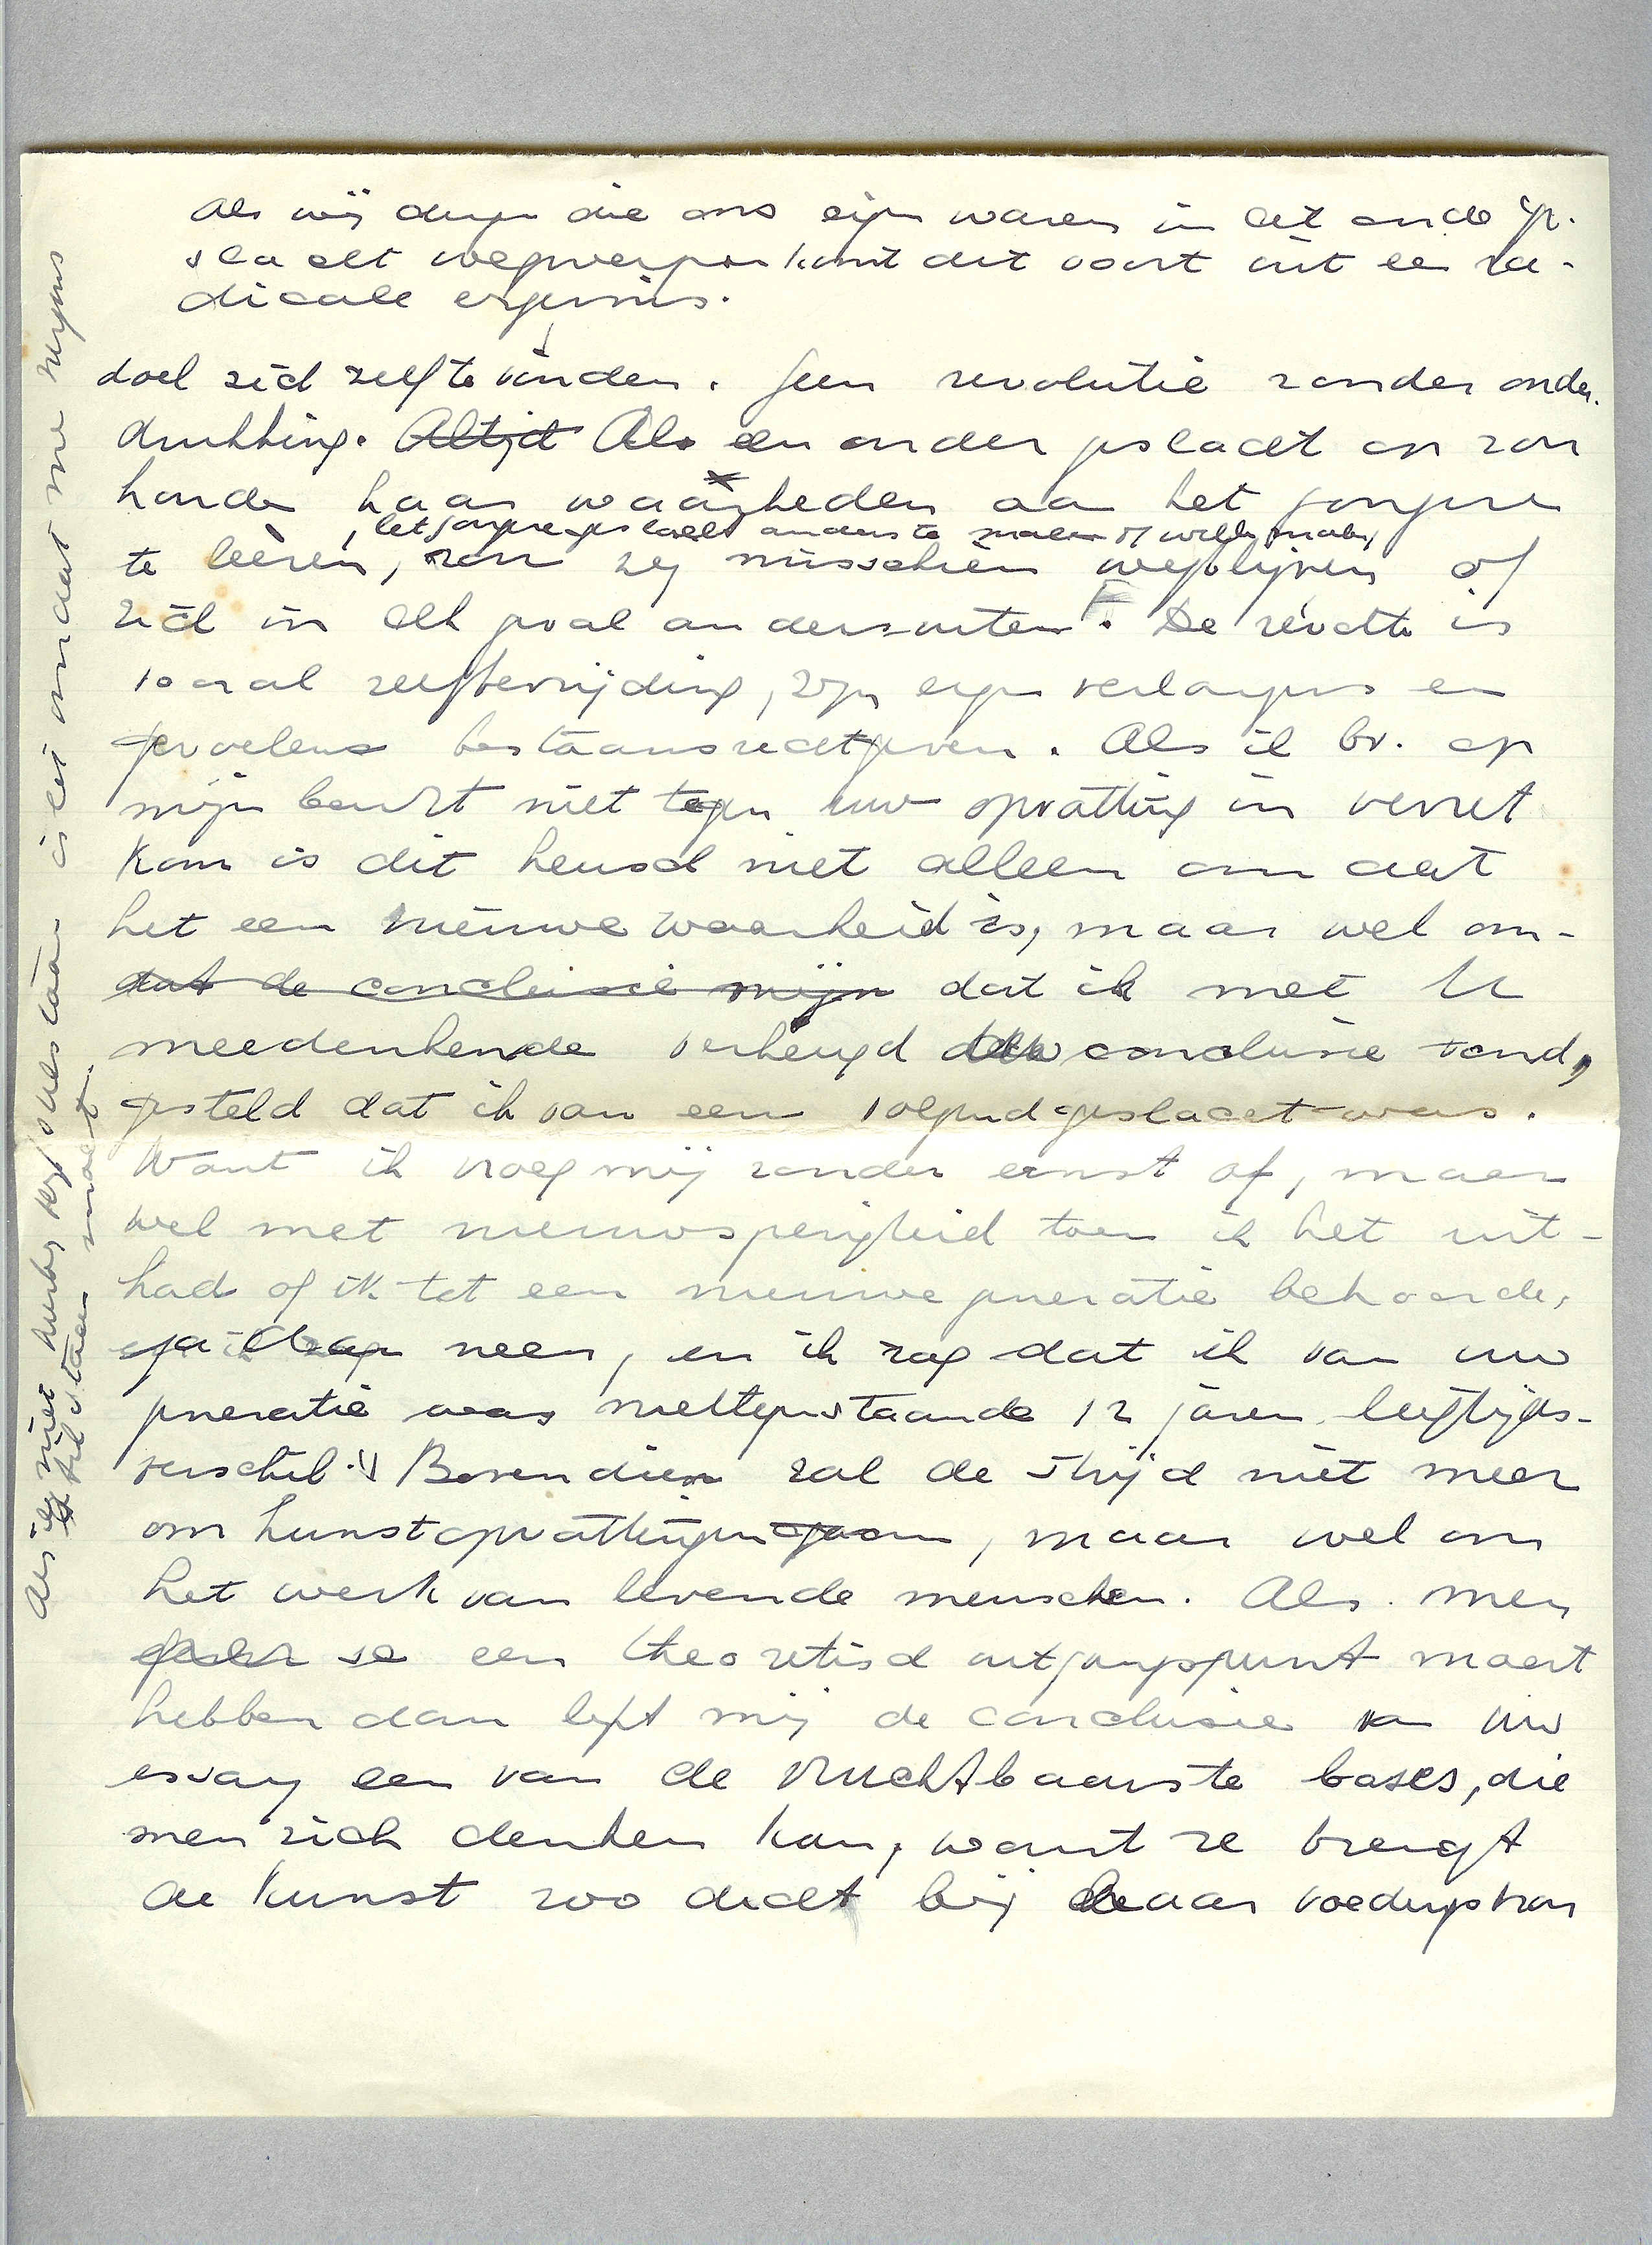 Als wij dingen die ons eigen waren in het oude ge-
slacht wegwerpen komt dit voort uit een ra-
dicale ergernis.
doel zich zelf te vinden. Geen revolutie zonder onder-
drukking. Altijd Als een ouder geslacht op zou
houden haar waarheden aan het jongere
, het jongere geslacht anders te maken of willen maken,
te leeren, zou zij misschien wegblijven of
zich in elk geval anders uiten. De revolte is
vooral zelfbevrijding, zijn eigen verlangens en
gevoelens bestaansrecht geven. Als ik bv. op
mijn beurt niet tegen uw opvatting in verzet
kom is dit heusch niet alleen om dat
het een nieuwe waarheid is, maar wel om-
dat de conclusie mijn dat ik met U
meedenkende verheugd Uw conclusie vond,
gesteld dat ik van een volgend geslacht was.
Want ik vroeg mij zonder ernst af, maar
wel met nieuwsgierigheid toen ik het uit-
had of ik tot een nieuwe generatie behoorde,
neen, en ik zag dat ik van uw
generatie was niettegenstaande 12 jaren leeftijds-
verschil. Bovendien zal de strijd niet meer
om kunstopvattingen gaan, maar wel om
het werk van levende menschen. Als men
een theoretisch uitgangspunt moet
hebben dan lijkt mij de conclusie van Uw
essay een van de vruchtbaarste bases, die
men zich denken kan, want ze brengt
de kunst zoo dicht bij haar voedingsbron
Als ik niet verder blijf stilstaan is het omdat me nergens
stilstaan maakt.